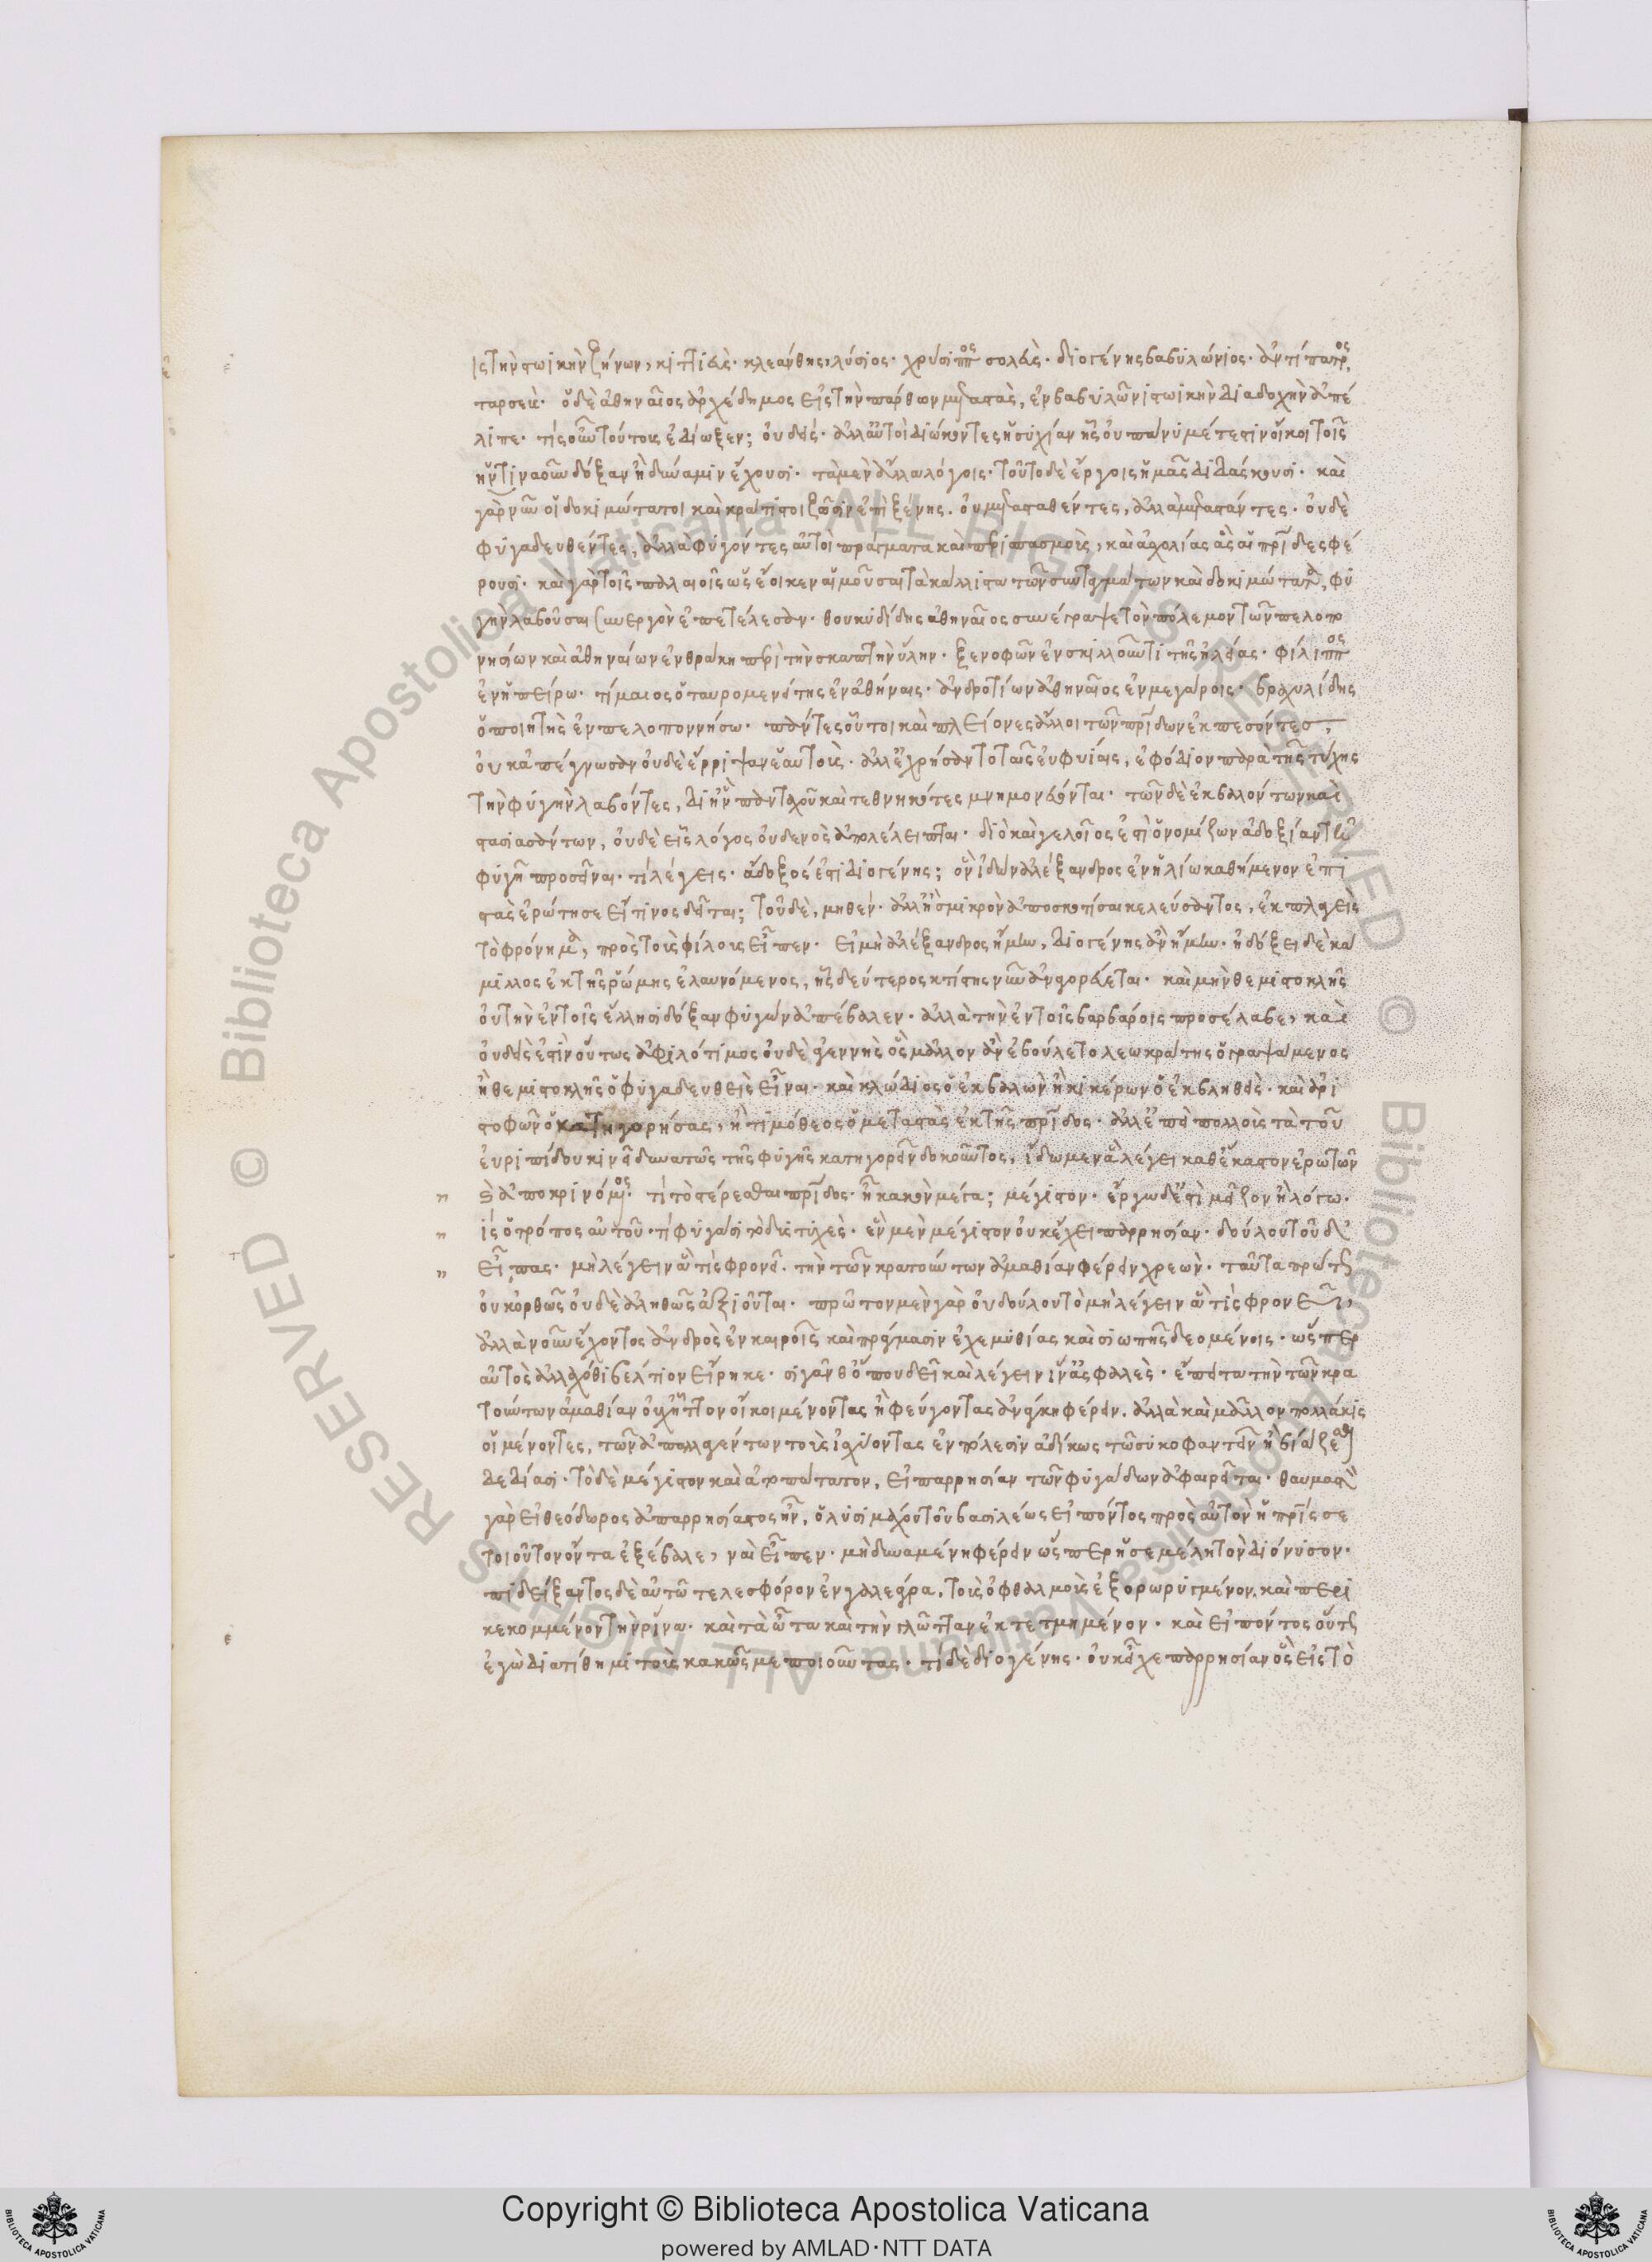 ις τὴν στωικὴν ζήνων, κιττιεὺς· κλεάνθης, λύσιος· χρύσιππος σολεὺς· διογένης βαβυλώνιος· ἀντίπατρος
ταρσεύς· ὁ δὲ ἀθηναῖος ἀρχέδημος εἰς τὴν πάρθων μεταστὰς, ἐν βαβυλῶνι στωικὴν διαδοχὴν ἀπέ
λιπε· τίς οὖν τούτους ἐδίωξεν; οὐδείς· ἀλλ' αὐτοὶ διώκοντες ἡσυχίαν ἧς οὐ πάνυ μέτεστιν οἴκοι τοῖς
ἥντινα οὖν δόξαν ἢ δύναμιν ἔχουσι· τὰ μὲν ἄλλα λόγοις· τοῦτο δὲ ἔργοις ἡμᾶς διδάσκουσι· καὶ
γὰρ νῦν οἱ δοκιμώτατοι καὶ κράτιστοι ζῶσιν ἐπὶ ξένης. οὐ μετασταθέντες, ἀλλὰ μεταστάντες· οὐδὲ
φυγαδευθέντες, ἀλλὰ φυγόντες αὐτοὶ πράγματα καὶ περισπασμοὺς, καὶ ἀσχολίας ἃς αἱ πατρίδες φέ
ρουσι· καὶ γὰρ τοῖς παλαιοῖς ὡς ἔοικεν αἱ μοῦσαι τὰ κάλλιστα τῶν συνταγμάτων καὶ δοκιμώτατα, φυ
γὴν λαβοῦσαι συνεργὸν ἐπετέλεσαν· θουκυδίδης ἀθηναῖος συνέγραψε τὸν πόλεμον τῶν πελοπο
νησίων καὶ ἀθηναίων ἐν θράκη περὶ τὴν σκαπτὴν ὕλην· ξενοφῶν ἐν σκιλλοῦντι τῆς ἠλείας· φίλιππος
ἐν ἠπείρω· τίμαιος ὁ ταυρομενείτης ἐν ἀθήναις· ἀνδροτίων ἀθηναῖος ἐν μεγάροις· βαχυλίδης
ὁ ποιητὴς ἐν πελοποννήσω· πάντες οὗτοι καὶ πλείονες ἄλλοι τῶν πατρίδων ἐκπεσόντες,
οὐκ ἀπέγνωσαν οὐδὲ ἔρριψαν ἑαυτοὺς· ἀλλ' ἐχρήσαντο ταῖς εὐφυίαις, ἐφόδιον παρὰ τῆς τύχης
τὴν φυγὴν λαβόντες, δι' ἣν πανταχοῦ καὶ τεθνηκότες μνημονεύονται· τῶν δὲ ἐκβαλόντων καὶ
στασιασάντων, οὐδὲ εἷς λόγος οὐδενὸς ἀπολέλειπται· διὸ καὶ γελοῖος ἐστὶ ὁ νομίζων ἀδοξίαν τῆ
φυγῆ προσεῖναι· τί λέγεις· ἄδοξός ἐστι διογένης; ὃν ἰδὼν ἀλέξανδρος ἐν ἡλίω καθήμενον ἐπι
στὰς ἐρώτησε εἴ τινος δεῖται; τοῦ δὲ, μηθέν· ἀλλ' ἢ σμικρὸν ἀποσκοτίσαι κελεύσαντος, ἐκπλαγεὶς
τὸ φρόνημα, πρὸς τοὺς φίλους εἶπεν· εἰ μὴ ἀλέξανδρος ἤμην, διογένης ἂν ἤμην· ἠδόξει δὲ κα
μιλλος ἐκ τῆς ῥώμης ἐλαυνόμενος, ἧς δεύτερος κτίστης νῦν ἀναγορεύεται· καὶ μὴν θεμιστοκλῆς
οὐ τὴν ἐν τοῖς ἕλλησι δόξαν φυγὼν ἀπέβαλεν· ἀλλὰ τὴν ἐν τοῖς βαρβάροις προσέλαβε, καὶ
οὐδείς ἐστιν οὕτως ἀφιλότιμος οὐδὲ ἀγεννὴς ὃς μᾶλλον ἂν ἐβούλετο λεωκράτης ὁ γραψάμενος
ἢ θεμιστοκλῆς ὁ φυγαδευθεὶς εἶναι· καὶ κλώδιος ὁ ἐκβαλὼν ἢ κικέρων ὁ ἐκβληθεὶς· καὶ ἀρι
στοφῶν ὁ κατηγορήσας, ἢ τιμόθεος ὁ μεταστὰς ἐκ τῆς πατρίδος· ἀλλ' ἐπεὶ πολλοὺς τὰ τοῦ
εὐριπίδου κινεῖ δυνατῶς τῆς φυγῆς κατηγορεῖν δοκοῦντος, ἴδωμεν ἃ λέγει καθ' ἕκαστον ἐρωτῶν
καὶ ἀποκρινόμενος· τί τὸ στέρεσθαι πατρίδος· ἦ κακὸν μέγα; μέγιστον· ἔργω δ' ἐστὶ μεῖζον ἢ λόγω·
ίς ὁ τρόπος αὐτοῦ· τί φυγάσι τὸ δυστυχὲς· ἓν μὲν μέγιστον οὐκ ἔχει παρρησίαν· δούλου τοῦδ'
εἶπας· μὴ λέγειν ἅ τις φρονεῖ· τὴν τῶν κρατούντων ἀμαθίαν φέρειν χρεὼν· ταῦτα πρώτως
οὐκ ὀρθῶς οὐδὲ ἀληθῶς ἀξιοῦται· πρῶτον μὲν γὰρ οὐ δούλου τὸ μὴ λέγειν ἅ τις φρονεῖ,
ἀλλὰ νοῦν ἔχοντος ἀνδρὸς ἐν καιροῖς καὶ πράγμασιν ἐχεμυθίας καὶ σιωπῆς δεομένοις· ὥσπερ
αὐτὸς ἀλλαχόθι βέλτιον εἴρηκε· σιγᾶν θ' ὅπου δεῖ καὶ λέγειν ἵν' ἀσφαλὲς· ἔπειτα τὴν τῶν κρα
τούντων ἀμαθίαν οὐχ ἧττον οἴκοι μένοντας ἢ φεύγοντας ἀνάγκη φέρειν. ἀλλὰ καὶ μᾶλλον πολλάκις
οἱ μένοντες, τῶν ἀπαλλαγέντων τοὺς ἰσχύοντας ἐν πόλεσιν ἀδίκως τῶ συκοφαντεῖν ἢ βιάζεσθαι
δεδίασι· τὸ δὲ μέγιστον καὶ ἀτοπώτατον, εἰ παρρησίαν τῶν φυγάδων ἀφαιρεῖται· θαυμαστὸν
γὰρ εἰ θεόδωρος ἀπαρρησίαστος ἦν, ὃ λυσιμάχου τοῦ βασιλέως εἰπόντος πρὸς αὐτὸν ἡ πατρίς σε
τοιοῦτον ὄντα ἐξέβαλε, ναὶ εἶπεν· μὴ δυναμένη φέρειν ὥσπερ ἡ σεμέλη τὸν διόνυσον·
πιδείξαντος δὲ αὐτῶ τελεσφόρον ἐν γαλεάγρα, τοὺς ὀφθαλμοὺς ἐξορωρυγμένον. καὶ περι
κεκομμένον τὴν ῥῖνα· καὶ τὰ ὦτα καὶ τὴν γλῶτταν ἐκτετμημένον· καὶ εἰπόντος οὕτως
ἐγὼ διατίθημι τοὺς κακῶς με ποιοῦντας· τί δὲ διογένης· οὐκ εἶχε παρρησίαν ὃς εἰς τὸ
Copyright © Biblioteca Apostolica Vaticana
powered by AMLAD·NTT DATA